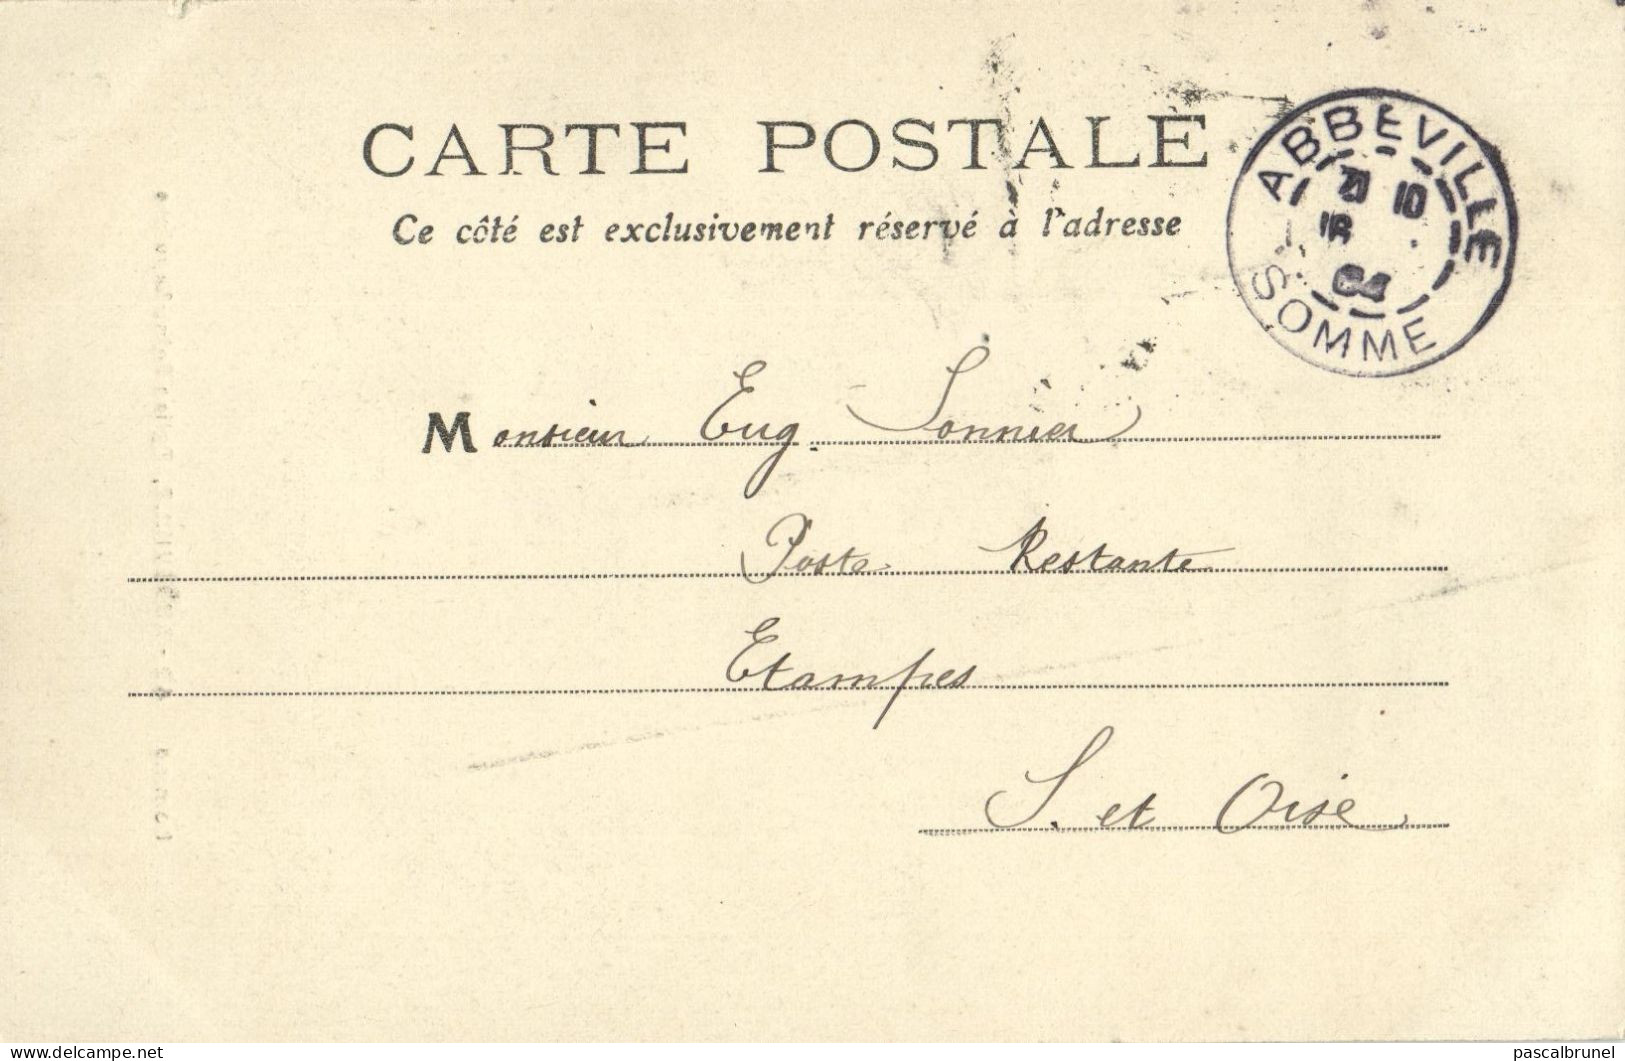 CARTE POSTALE
Ce côté est exclusivement réservé à l'adresse
ABBEVILLE
10
04
SOMME
Monsieur Eug. Sonnier
Poste Restante
Etampes
S. et Oise
delcampe.net
pascalbrunel